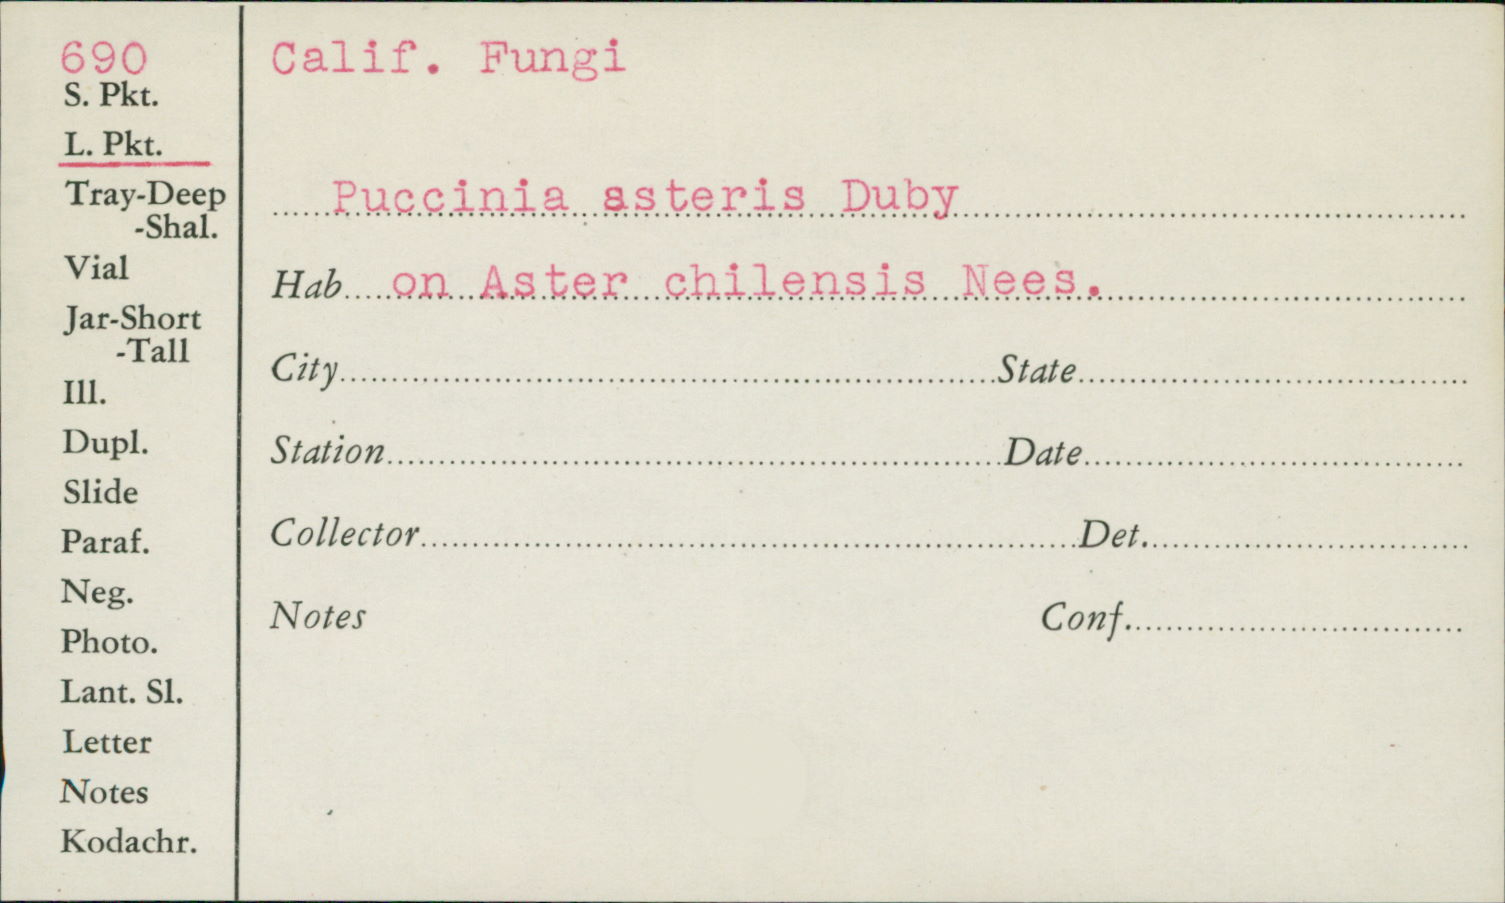 690
S. Pkt.
L. Pkt.
Tray-Deep
-Shal.
Vial
Jar-Short
-Tall
Ill.
Dupl.
Slide
Paraf.
Neg.
Photo.
Lant. Sl.
Letter
Notes
Kodachr.
Calif. Fungi
Puccinia asteris Duby
Hab on Aster chilensis Nees.
City State
Station Date
Collector Det.
Notes Conf.